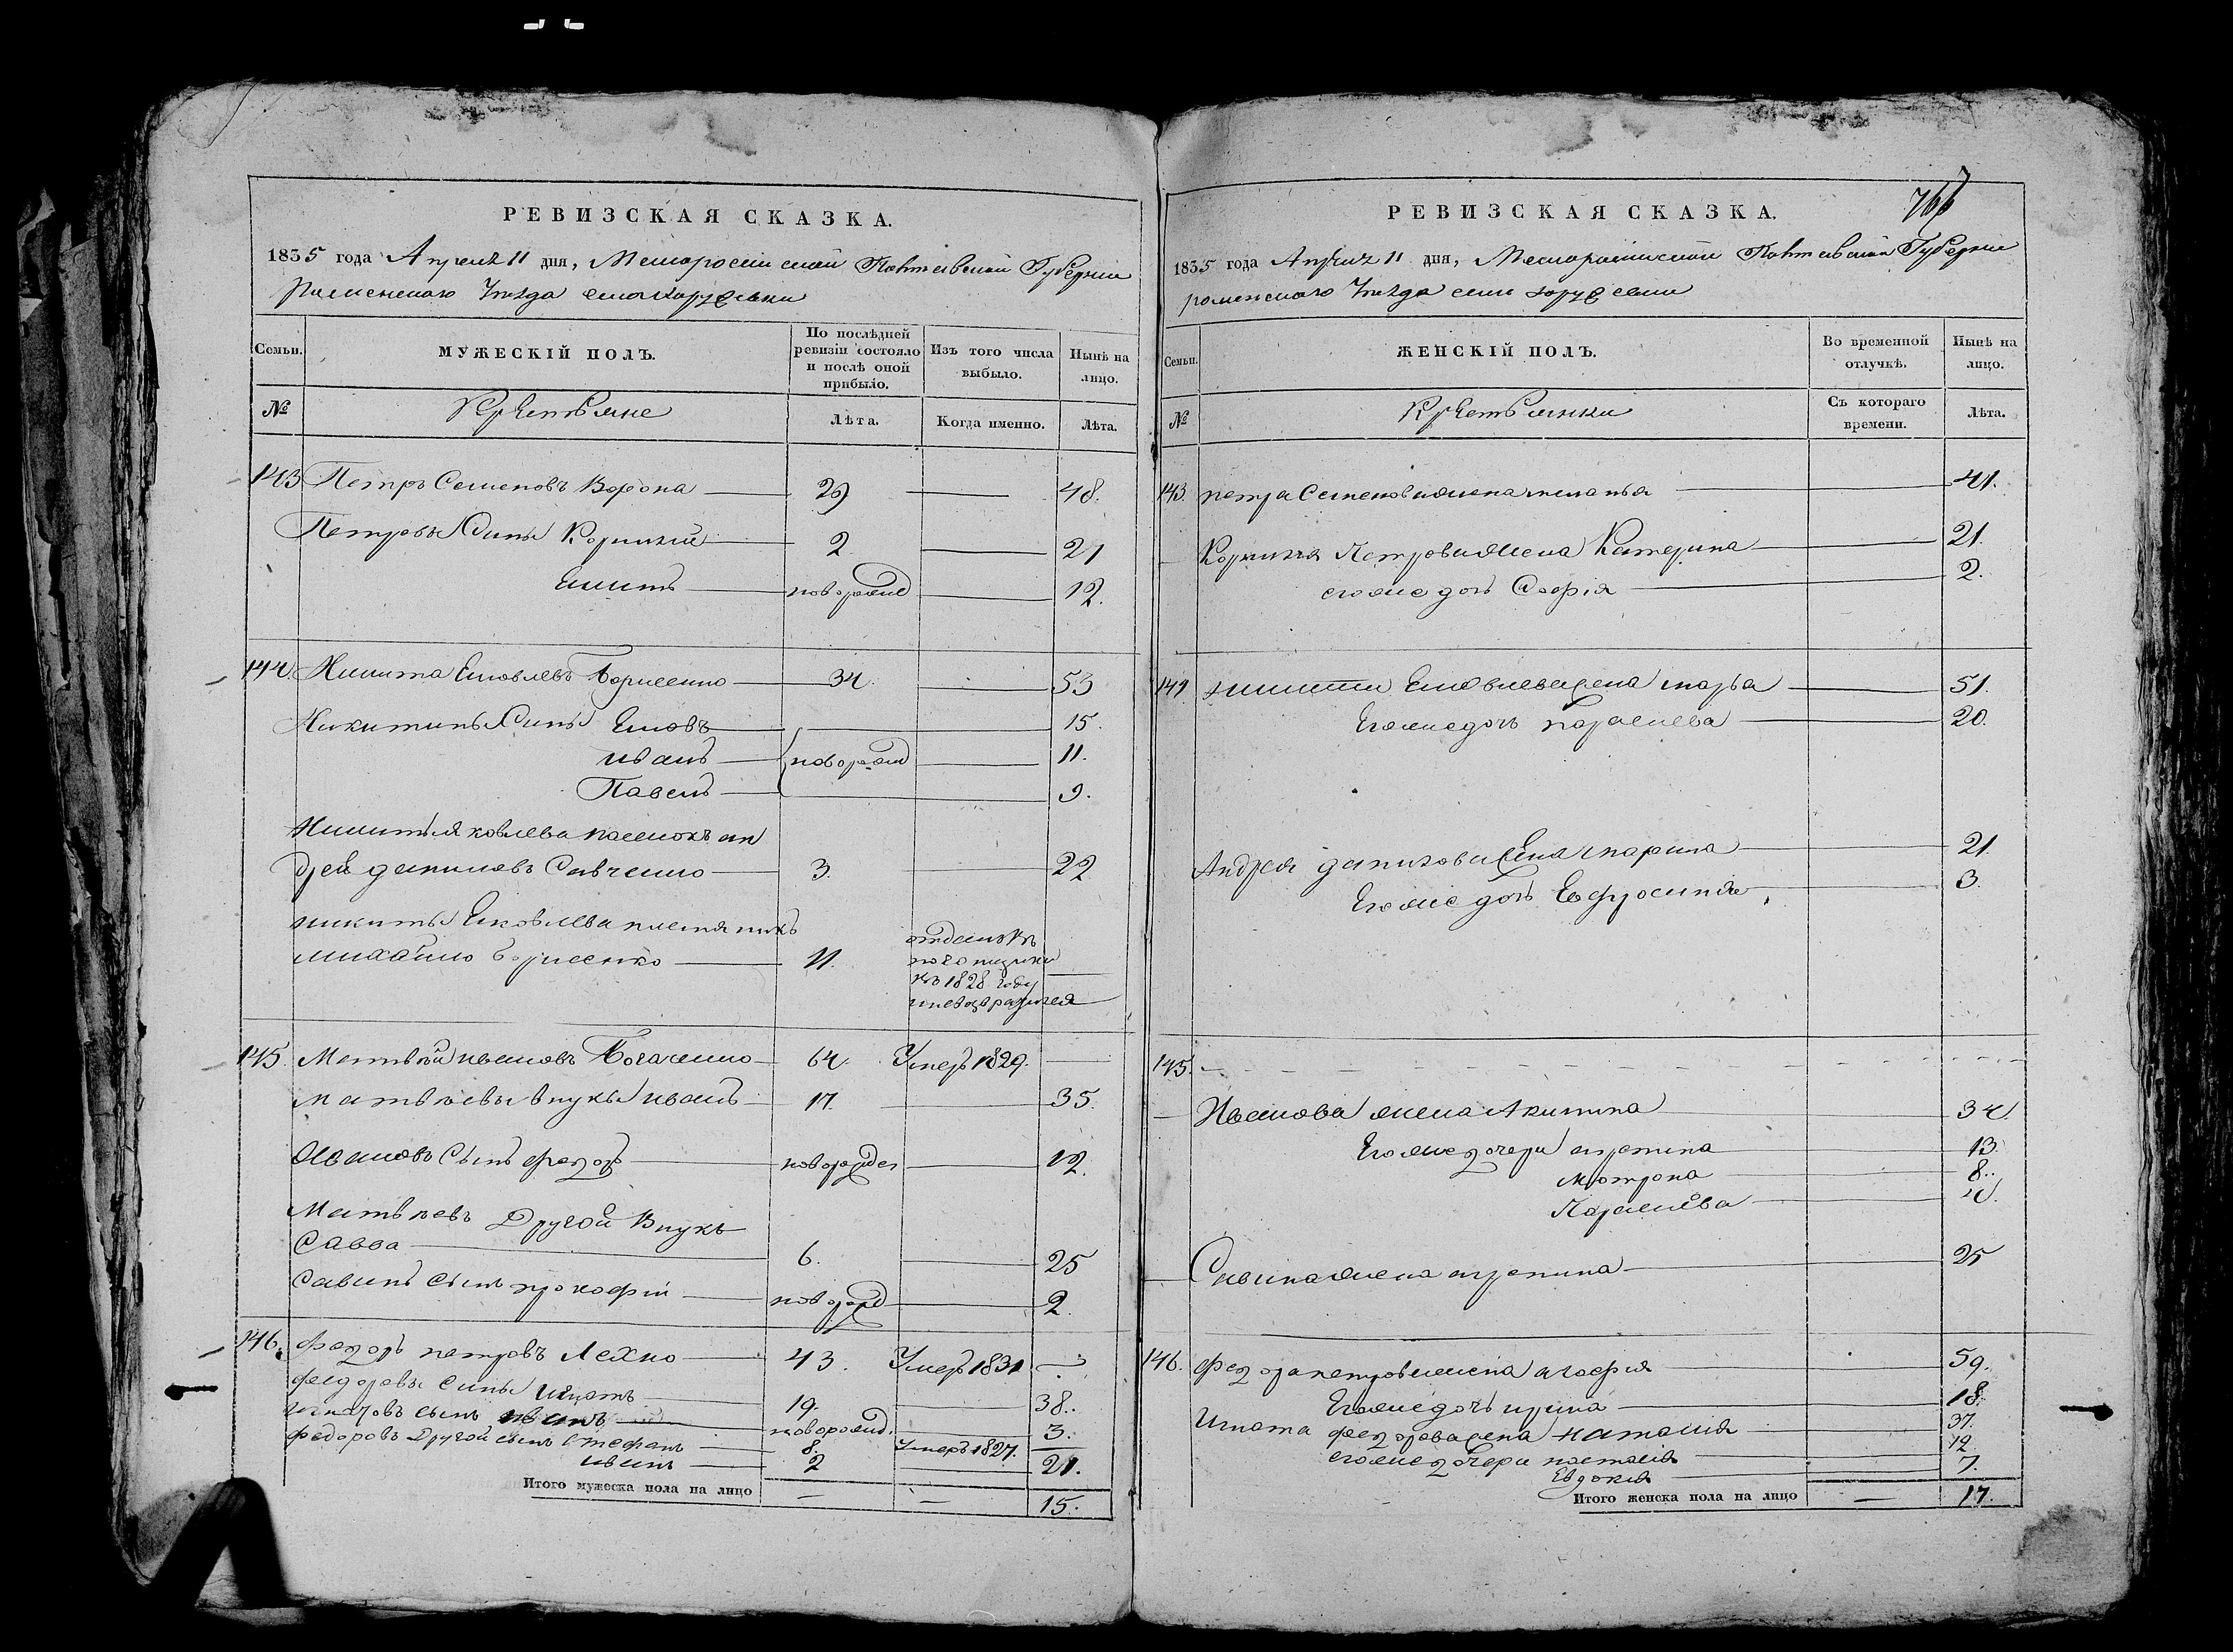 РЕВИЗСКАЯ СКАЗКА.
1835 года Апреля 11 дня, Малоросiйской Полтавской Губернiи
Роменского Уезда села Хоружевки
Семьи.
МУЖЕСКIЙ ПОЛЪ.
По послѣдней ревизiи состояло и послѣ оной прибыло.
Изъ того числа выбыло.
Нынѣ на лицо.
№
Крестьяне
Лѣта.
Когда именно.
Лѣта.
143 Петръ Семеновъ Ворона 29 48.
Петровы Сины Корнилiй 2 21
новорожд 12.
144. Никита Яковлевъ Борисенко 34. 53
Никитины Сины Яковъ 15.
иванъ новорожд 11.
Павелъ 9.
Никиты яковлева пасынокъ ан
дрей даниловъ Савченко 3. 22
никиты Яковлева племянникъ
михайло борисенко 11. отданъ въ
въ 1828 году
145. Матвѣй ивановъ Богаченко 64. Умеръ 1829.
матвѣевы внуки иванъ 17. 35.
Ивановъ Сынъ федоръ новорожден 12.
Матвѣевъ Другой Внукъ
Савва 6. 25
Савинъ сынъ прокофiй новорожд 2.
146. федоръ петровъ Лехно 43. Умеръ 1831
федоровы сины игнатъ 19. 38.
игнатовъ сынъ иванъ новорожд. 3.
федоровъ Другой сынъ Стефанъ 8. Умеръ 1827.
иванъ 2 21.
Итого мужеска пола на лицо — — 15.
766
РЕВИЗСКАЯ СКАЗКА.
1835 года Апреля 11 дня, Малоросiйской Полтавской Губернiи
роменского Уезда села хоружевки
Семьи.
ЖЕНСКIЙ ПОЛЪ.
Во временной отлучкѣ.
Нынѣ на лицо.
№
Крестьянки
Съ котораго времени.
Лѣта.
143. петра Семенова жена меланья 41.
Корнилiя Петрова жена Катерина 21.
егоже дочь Софiя 2.
144. никиты Яковлева жена марья 51.
Егоже дочь параскева 20.
Андрея данилова жена марина 21.
Егоже дочь Евфросинiя 3.
145.
Иванова жена Акилина 34
Егоже дочери агрепина 13.
мотрона 8.
Параскева 4.
Савина жена агрепина 25
146. федора петрова жена агафiя 59.
Егоже дочь ирина 18.
Игната федорова жена наталiя 37.
егоже дочери настасiя 12.
Евдокiя 7.
Итого женска пола на лицо — 17.